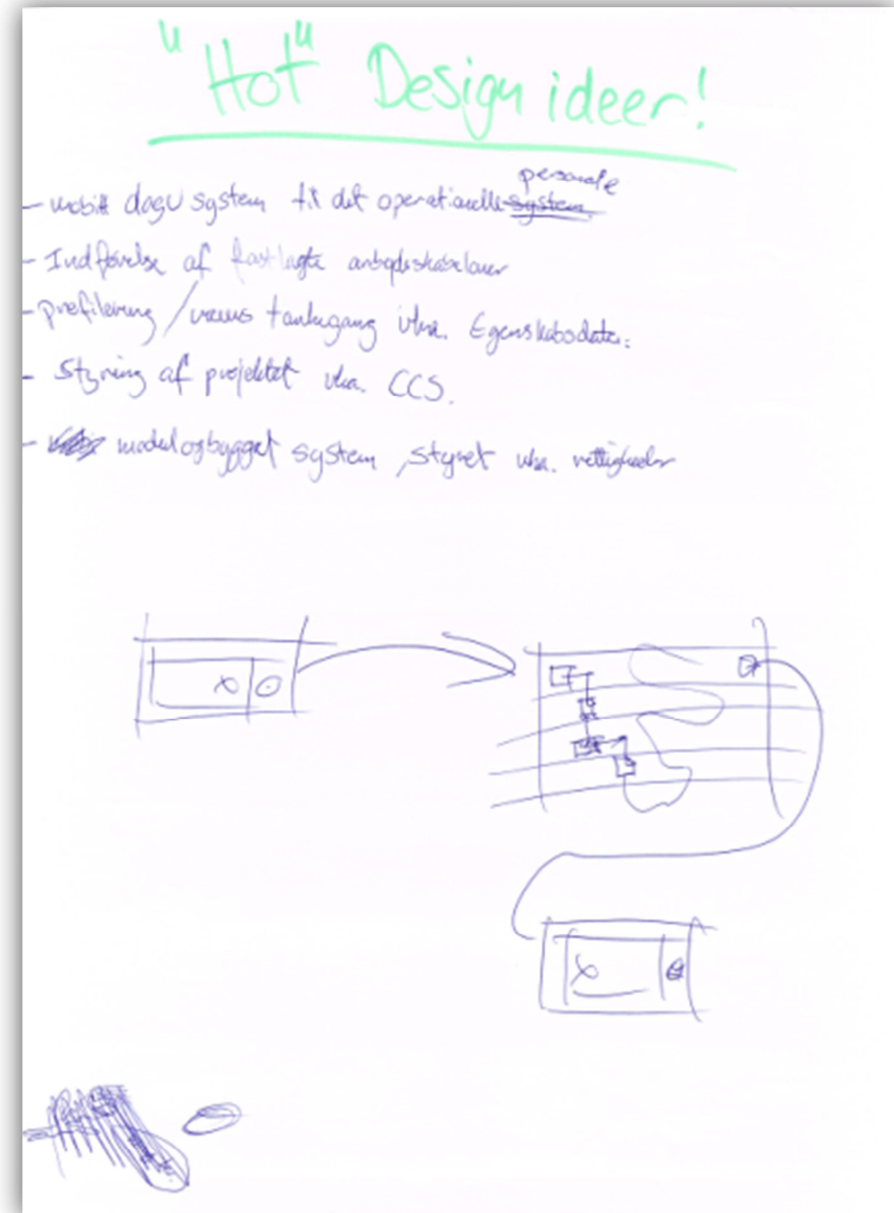 "Hot" Design ideer!
personale
- mobilt dagu system til det operationelle system
- Indførelse af fastlagte arbejdsskabeloner
- profilering / tankegang vha. Egenskabsdata.
- Styring af projektet vha. CCS.
- modulopbygget system, styret vha. rettigheder